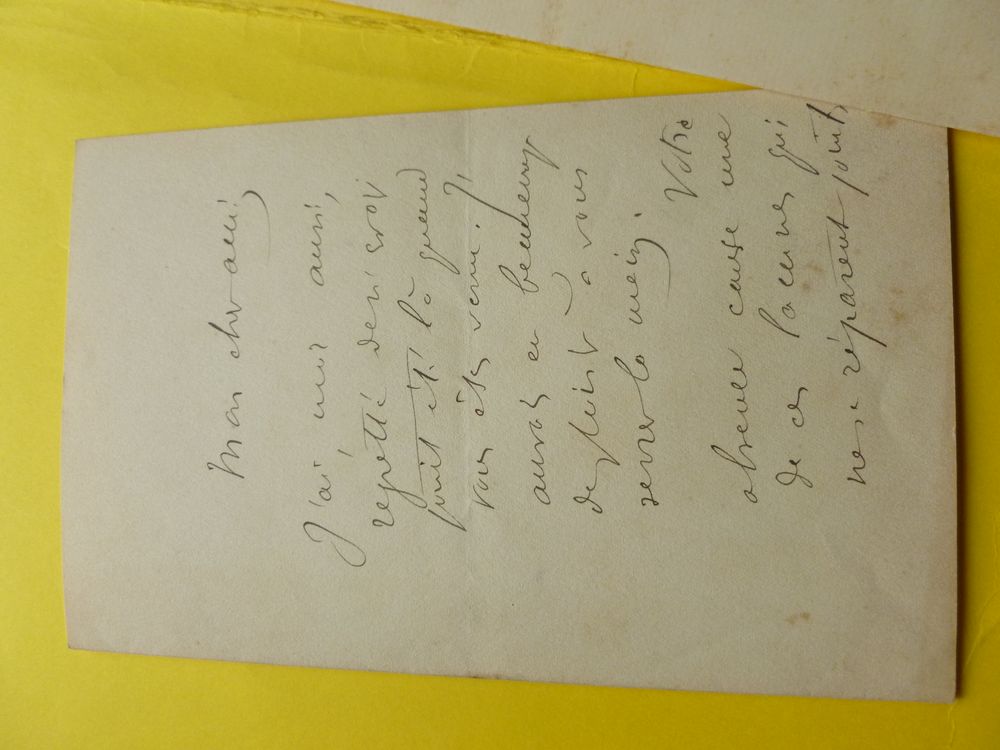 Mon cher ami,
J'ai moi aussi,
regretté de n'avoir
point été là quand
vous êtes venu. J'
aurais eu beaucoup
de plaisir à vous
serrer la main. Votre
absence cause une
de ces lacunes qui
ne se réparent point,